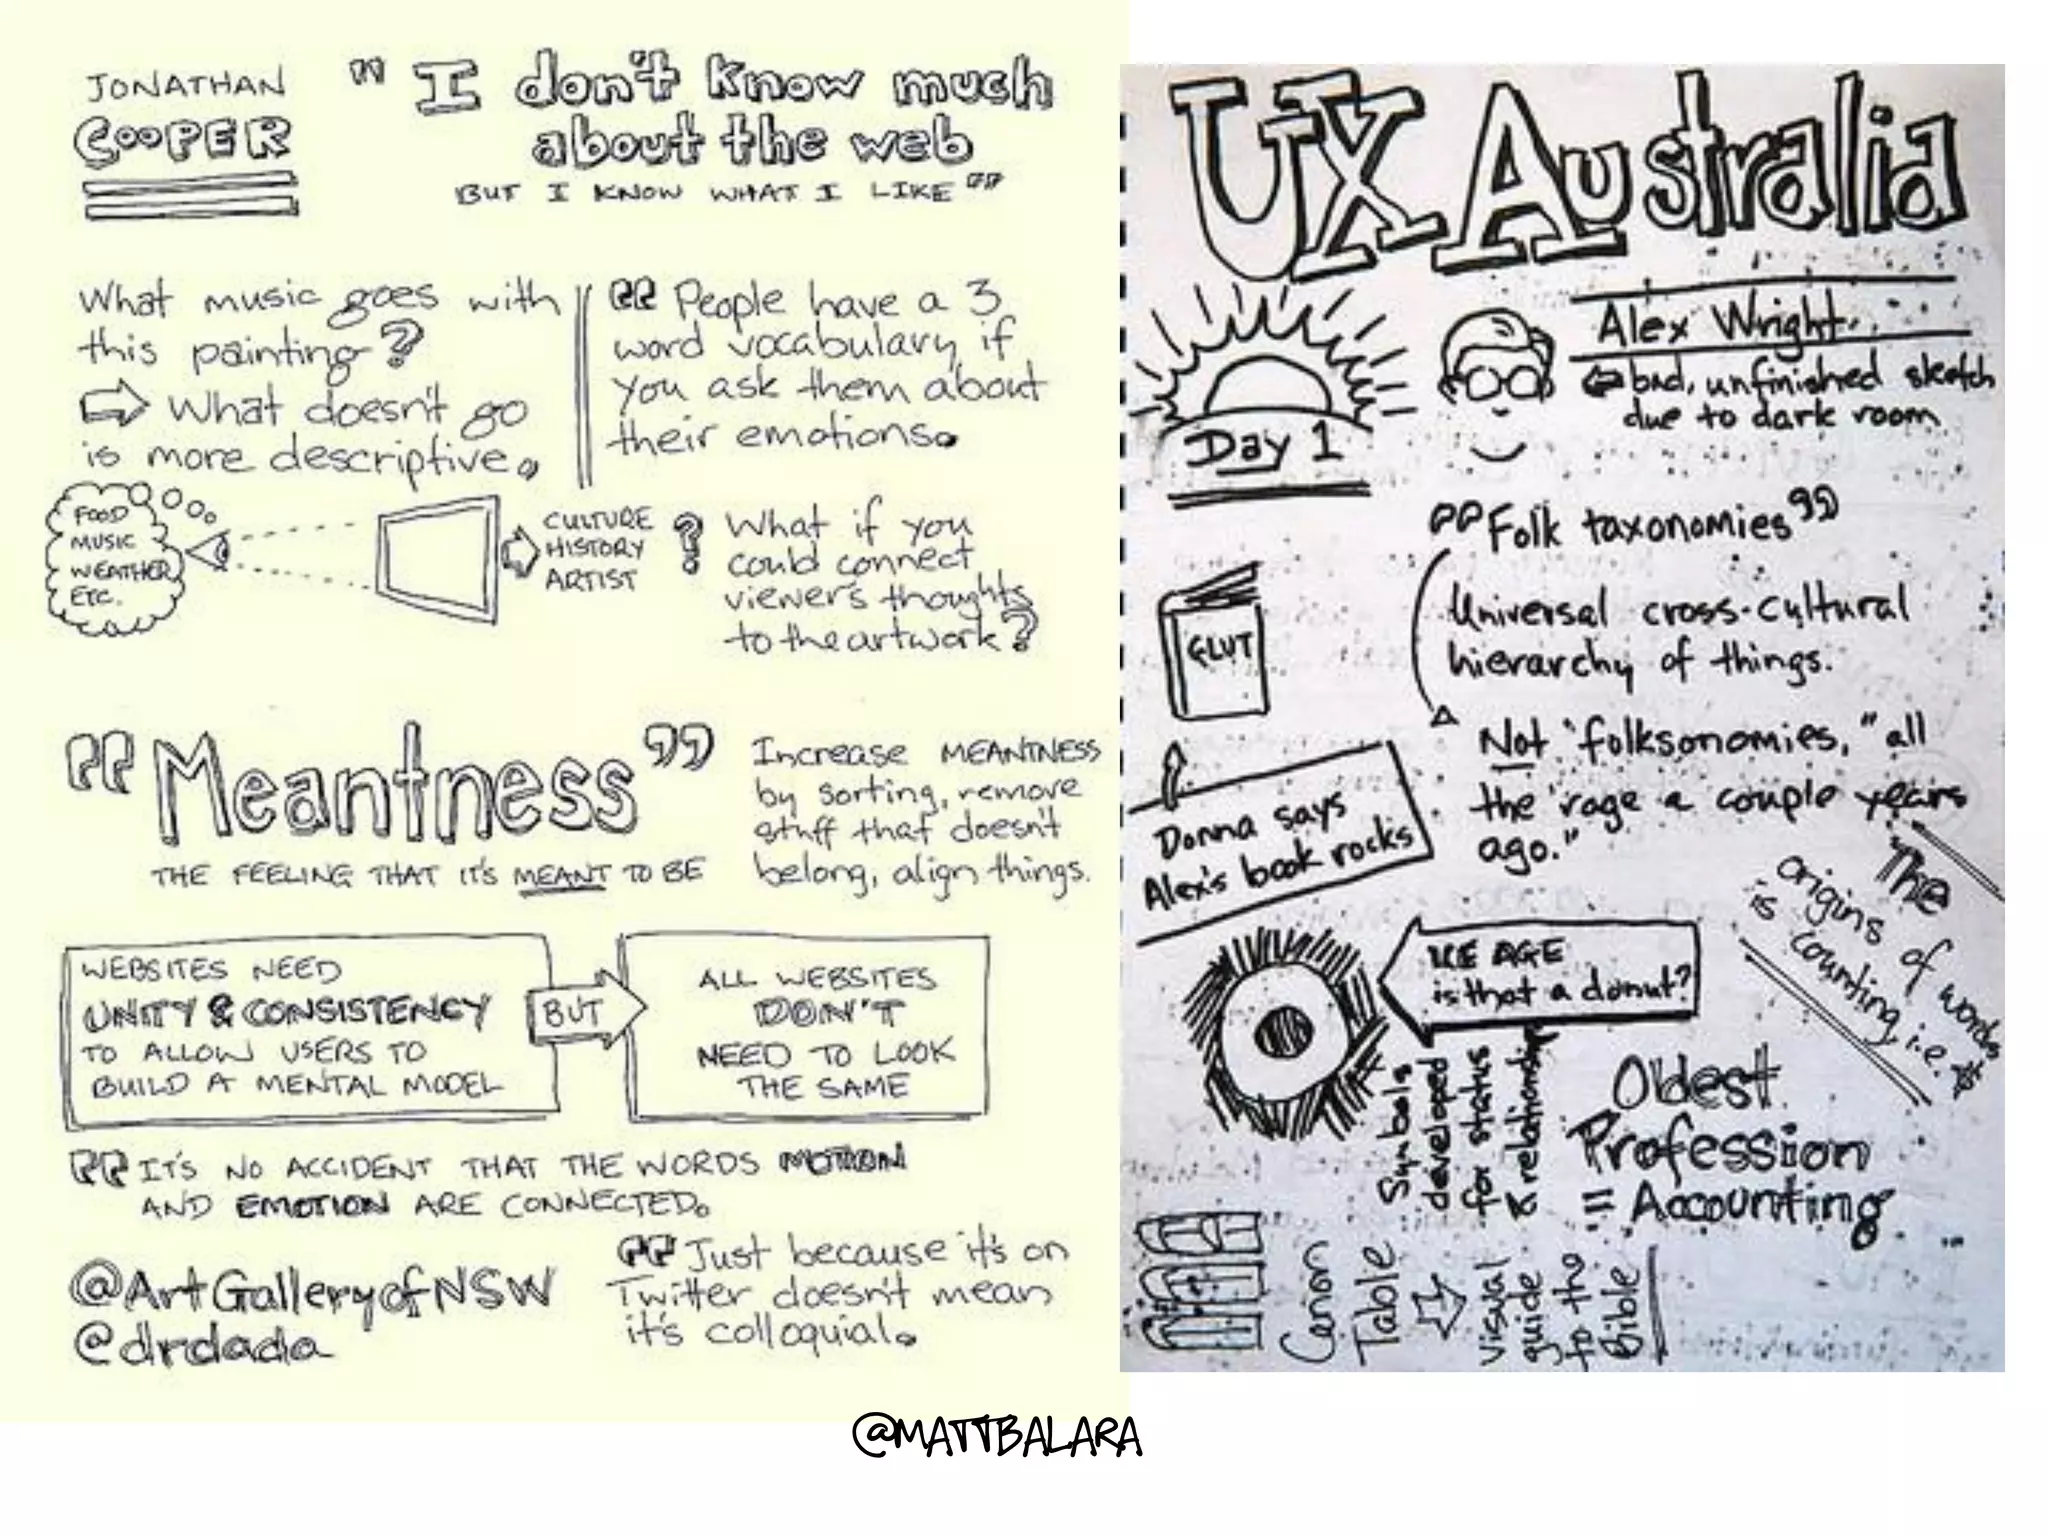 JONATHAN
COOPER
" I don't know much
about the web
BUT I KNOW WHAT I LIKE "
What music goes with
this painting?
⇨ What doesn't go
is more descriptive.
"People have a 3
word vocabulary if
you ask them about
their emotions.
FOOD
MUSIC
WEATHER
ETC.
CULTURE
HISTORY
ARTIST
?
What if you
could connect
viewer's thoughts
to the artwork?
"Meantness"
THE FEELING THAT IT'S MEANT TO BE
Increase MEANTNESS
by sorting, remove
stuff that doesn't
belong, align things.
WEBSITES NEED
UNITY & CONSISTENCY
TO ALLOW USERS TO
BUILD A MENTAL MODEL
BUT
ALL WEBSITES
DON'T
NEED TO LOOK
THE SAME
"IT'S NO ACCIDENT THAT THE WORDS MOTION
AND EMOTION ARE CONNECTED.
@ArtGalleryofNSW
@drdada
"Just because it's on
Twitter doesn't mean
it's colloquial.
UX Australia
Day 1
Alex Wright
bad, unfinished sketch
due to dark room
"Folk taxonomies"
Universal cross-cultural
hierarchy of things.
Not "folksonomies," all
the "rage a couple years
ago."
GLUT
Donna says
Alex's book rocks
The
origins of words
is counting, i.e. $
ICE AGE
is that a donut?
Symbols
developed
for status
& relationship
Oldest
Profession
= Accounting
Canon
Table
visual
guide
to the
Bible
@MATTBALARA